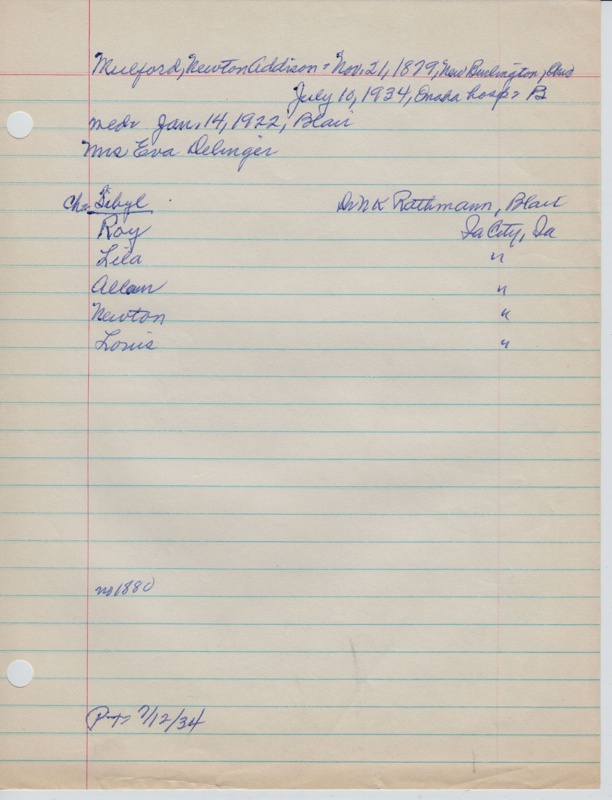 Mulford, Newton Addison = Nov. 21, 1879, New Burlington, Ohio
July 10, 1934, Omaha hosp = B
med= Jan. 14, 1922, Blair
Mrs Eva Delinger
Chn Sibyl Dr N K Rathmann, Blair
Roy Ia City, Ia
Lila "
Allan "
Newton "
Louis "
no 1880
P-T= 7/12/34